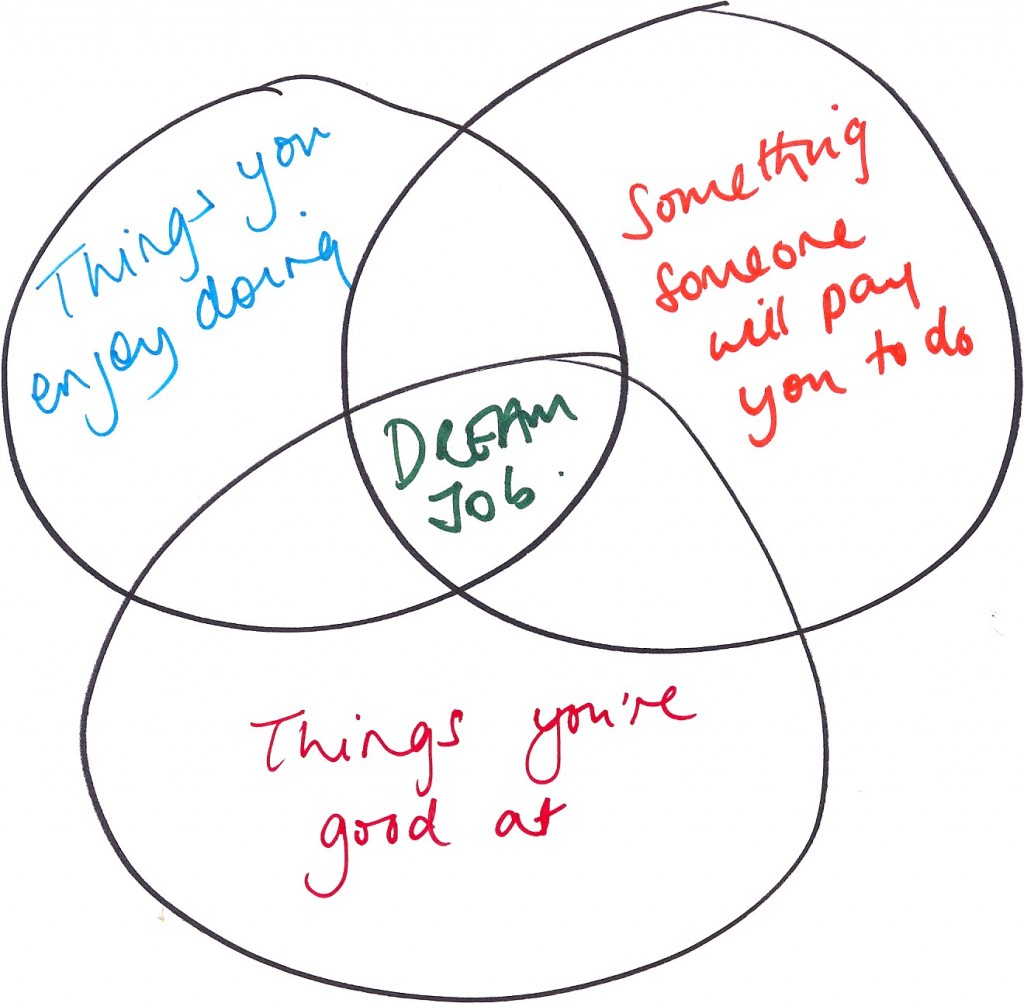 Things you
enjoy doing
Something
someone
will pay
you to do
DREAM
JOB.
Things you're
good at